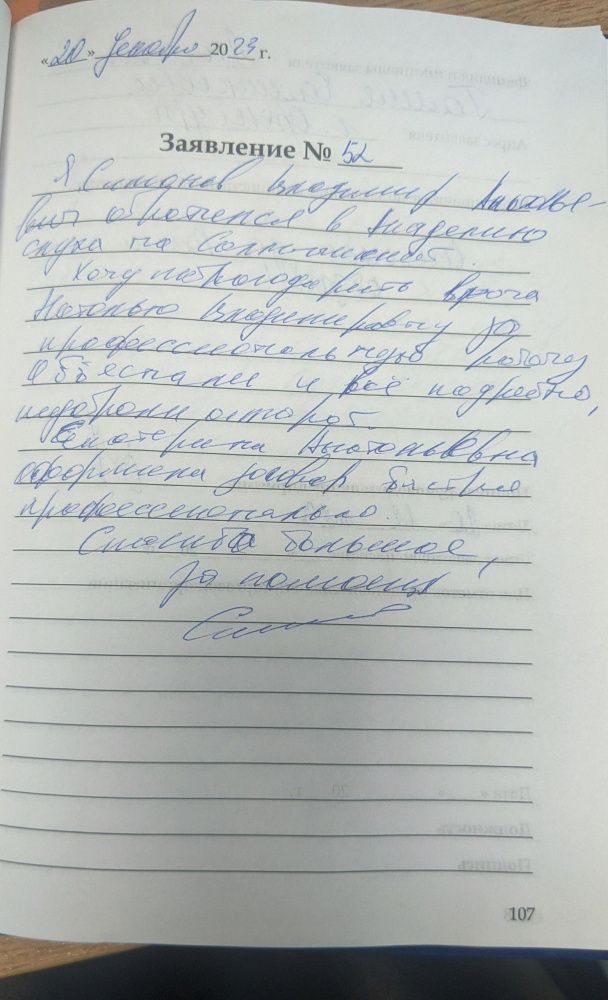 «20» Декабря 2023 г.
Заявление № 52
Я Симанов Владимир Анатолье-
вич обратился в Академию
слуха на
Хочу поблагодарить врача
Наталью Владимировну за
профессиональную работу
Объяснили и всё подробно,
подобрали аппарат.
Екатерина Анатольевна
оформила договор быстро
профессионально.
Спасибо большое,
за помощь
107